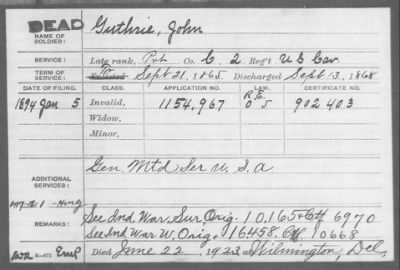 DEAD
Guthrie, John
NAME OF SOLDIER:
SERVICE: Late rank, Pvt Co. C, 2 Reg't U S Cav.
TERM OF SERVICE: Enlisted Sept 21, 1865 Discharged Sept 13, 1868
DATE OF FILING. CLASS. APPLICATION NO. LAW. CERTIFICATE NO.
R.E.
1894 Jan 5 Invalid, 1154,967 O S 902403
Widow.
Minor,
Gen Mtd Ser U.S.A
ADDITIONAL SERVICES:
REMARKS: See Ind. War, Sur. Orig. 10165 Ctf 6970
See Ind War W. Orig. 16458. Ctf 10668
Died June 22, 1923, at Wilmington, Del.